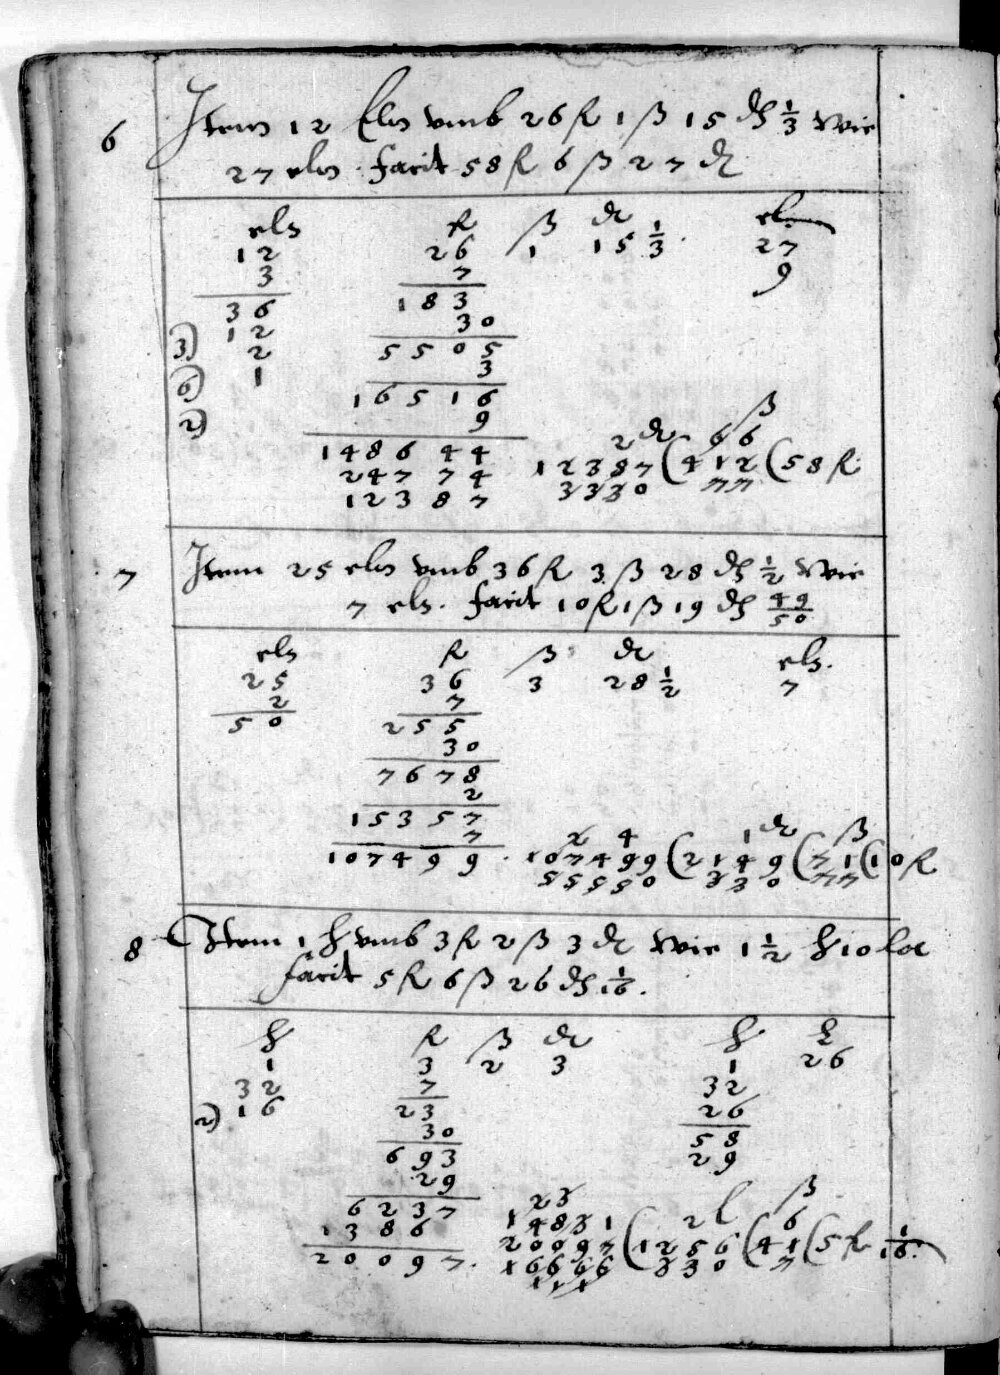 6 Item 12 Eln vmb 26 fl 1 ß 15 ₰ 1/3 Wie
27 eln facit 58 fl 6 ß 27 ₰
eln fl ß ₰ eln
12 26 1 15 1/3 27
3 7 9
36 183
12 30
3) 2 5505
6) 1 3
2) 16516
9
148644
24774
12387
2 ₰ 6 6 ß
12387 ( 412 ( 58 fl
3330 77
7 Item 25 eln vmb 36 fl 3 ß 28 ₰ 1/2 Wie
7 eln. facit 10 fl 1 ß 19 ₰ 49/50
eln fl ß ₰ eln.
25 36 3 28 1/2 7
2 7
50 255
30
7678
2
15357
7
107499
2 4 1 ₰ ß
107499 ( 2149 ( 71 ( 10 fl
55550 330 77
8 Item 1 ℔ vmb 3 fl 2 ß 3 ₰ Wie 1 1/2 ℔ 10 lot
facit 5 fl 6 ß 26 ₰ 1/16.
℔ fl ß ₰ ℔ l
1 3 2 3 1 26
32 7 32
2) 16 23 26
30 58
693 29
29
6237
1386
20097.
23
14831 2 6 ß
20097 ( 1256 ( 41 ( 5 fl 1/16.
16666 330 7
111